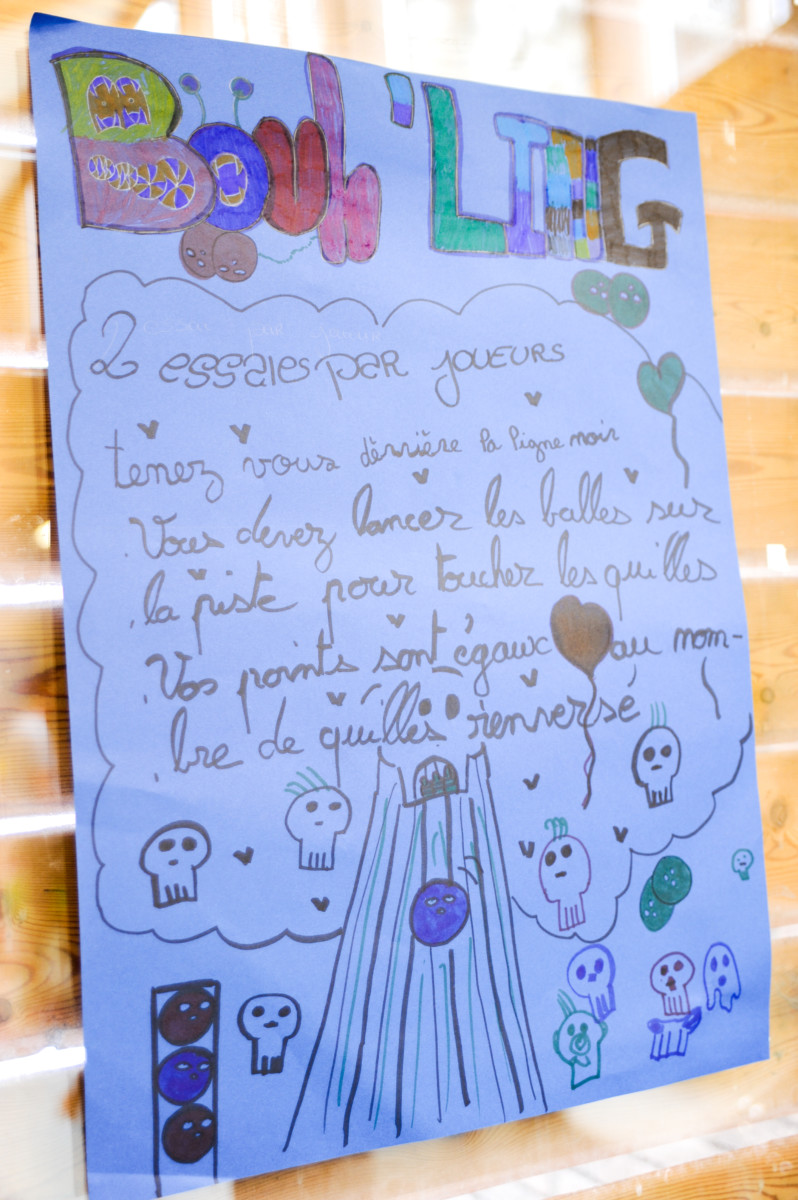 Bouh 'LING
2 essaies par joueurs
tenez vous dèrrière la ligne noir
Vous devez lancer les balles sur
la piste pour toucher les quilles
Vos points sont égaux au nom-
bre de quilles renversé